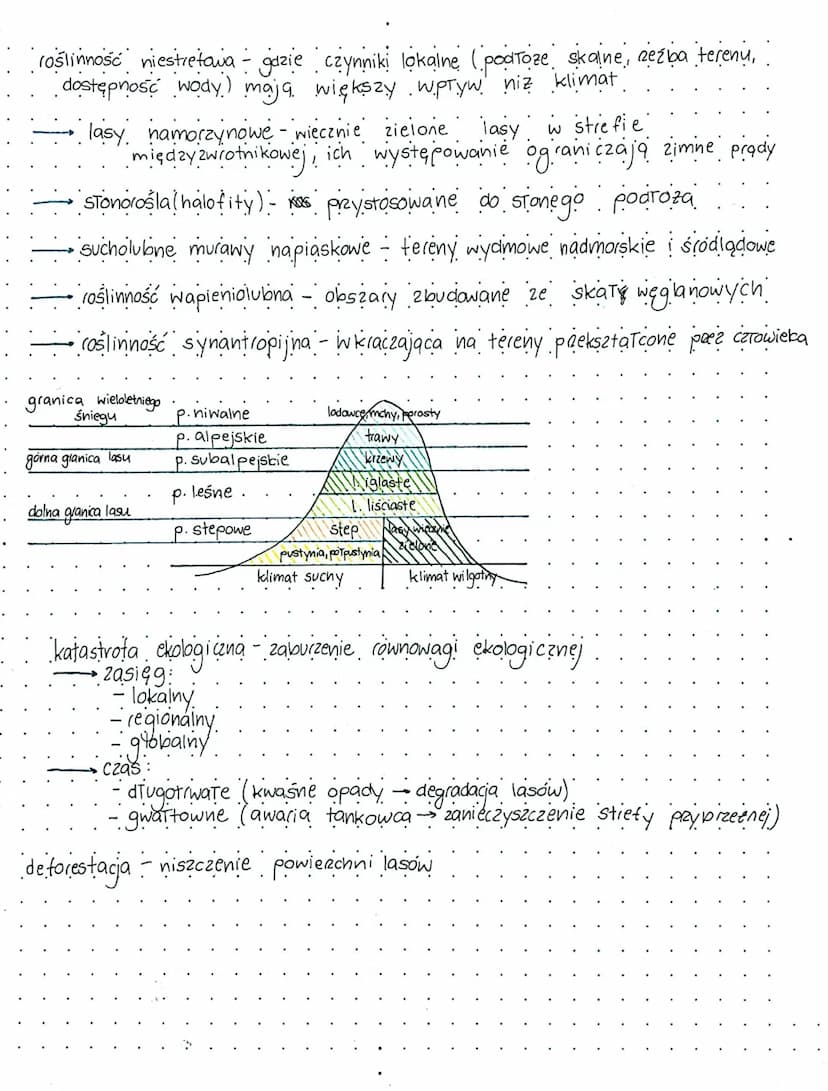 roślinność niestrefowa - gdzie czynniki lokalne (podłoże skalne, rzeźba terenu,
dostępność wody) mają większy wpływ niż klimat
→ lasy namorzynowe - wiecznie zielone lasy w strefie
międzyzwrotnikowej, ich występowanie ograniczają zimne prądy
→ słonorośla (halofity) - przystosowane do słonego podłoża
→ sucholubne murawy napiaskowe - tereny wydmowe nadmorskie i śródlądowe
→ roślinność wapieniolubna - obszary zbudowane ze skał węglanowych
→ roślinność synantropijna - wkraczająca na tereny przekształcone przez człowieka
granica wieloletniego
śniegu
p. niwalne
lodowce, mchy, porosty
p. alpejskie
trawy
górna granica lasu
p. subalpejskie
krzewy
l. iglaste
p. leśne
l. liściaste
dolna granica lasu
p. stepowe
step
lasy wiecznie
zielone
pustynia, półpustynia
klimat suchy
klimat wilgotny
katastrofa ekologiczna - zaburzenie równowagi ekologicznej
→ zasięg:
- lokalny
- regionalny
- globalny
→ czas:
- długotrwałe (kwaśne opady → degradacja lasów)
- gwałtowne (awaria tankowca → zanieczyszczenie strefy przybrzeżnej)
deforestacja - niszczenie powierzchni lasów